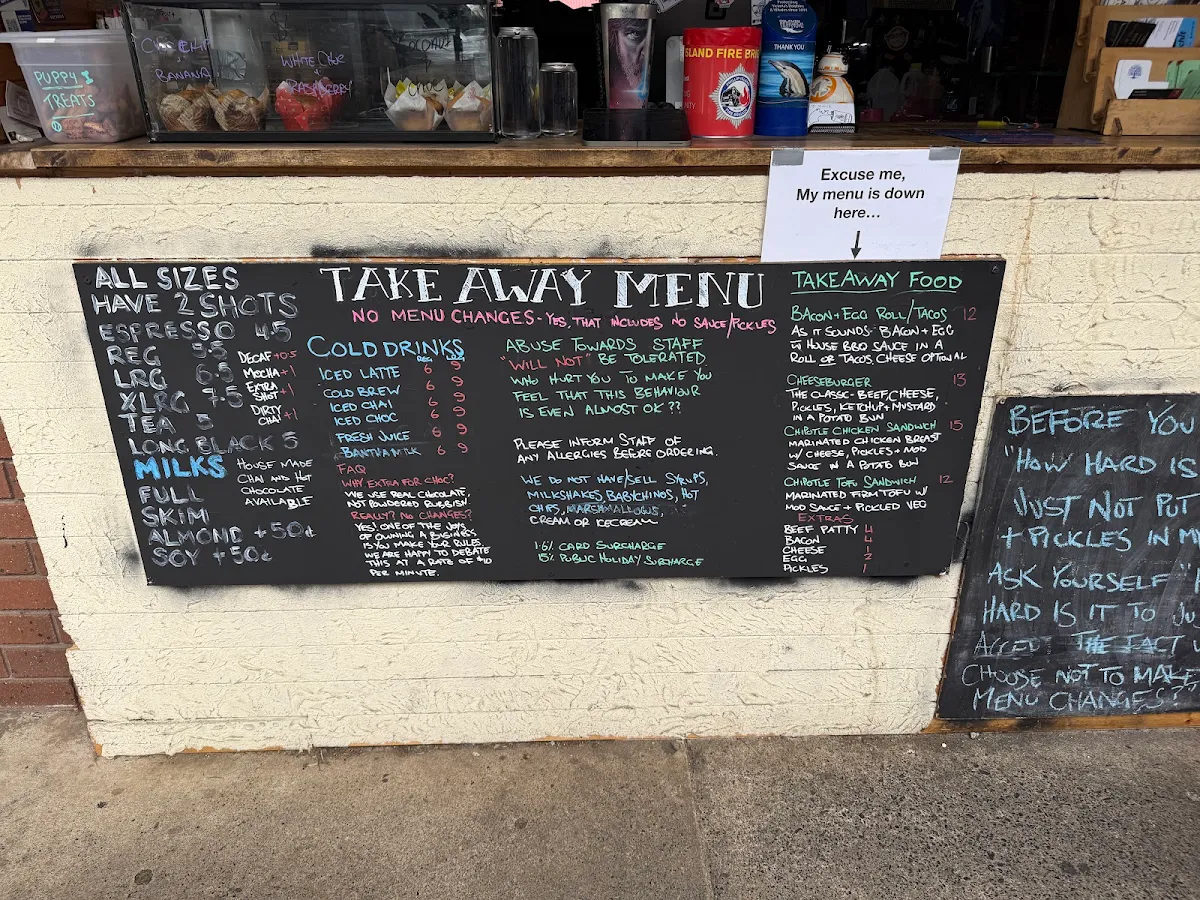 PUPPY
TREATS
CHOC CHIP
BANANA
WHITE CHOC
RASPBERRY
ISLAND FIRE BRI
THANK YOU
Excuse me,
My menu is down
here...
ALL SIZES
HAVE 2 SHOTS
ESPRESSO 4.5
REG 5.5
LRG 6.5
XLRG 7.5
TEA 5
LONG BLACK 5
DECAF +0.5
MOCHA +1
EXTRA
SHOT +1
DIRTY
CHAI +1
MILKS
FULL
SKIM
ALMOND +50¢
SOY +50¢
HOUSE MADE
CHAI AND HOT
CHOCOLATE
AVAILABLE
TAKE AWAY MENU
NO MENU CHANGES - YES, THAT INCLUDES NO SAUCE/PICKLES
COLD DRINKS
REG LRG
ICED LATTE 6 9
COLD BREW 6 9
ICED CHAI 6 9
ICED CHOC 6 9
FRESH JUICE 6 9
BANTUA MILK 6 9
FAQ
WHY EXTRA FOR CHOC?
WE USE REAL CHOCOLATE
NOT POWDERED RUBBISH
REALLY? NO CHANGES?
YES! ONE OF THE JOYS
OF OWNING A BUSINESS
IS YOU MAKE YOUR RULES.
WE ARE HAPPY TO DEBATE
THIS AT A RATE OF $10
PER MINUTE.
ABUSE TOWARDS STAFF
"WILL NOT" BE TOLERATED
WHO HURT YOU TO MAKE YOU
FEEL THAT THIS BEHAVIOUR
IS EVEN ALMOST OK??
PLEASE INFORM STAFF OF
ANY ALLERGIES BEFORE ORDERING.
WE DO NOT HAVE/SELL SYRUPS,
MILKSHAKES, BABYCHINOS, HOT
CHIPS, MARSHMALLOWS,
CREAM OR ICECREAM
1.6% CARD SURCHARGE
15% PUBLIC HOLIDAY SURCHARGE
TAKEAWAY FOOD
BACON + EGG ROLL/TACOS 12
AS IT SOUNDS - BACON + EGG
W HOUSE BBQ SAUCE IN A
ROLL OR TACOS, CHEESE OPTIONAL
CHEESEBURGER 13
THE CLASSIC - BEEF, CHEESE,
PICKLES, KETCHUP + MUSTARD
IN A POTATO BUN
CHIPOTLE CHICKEN SANDWICH 15
MARINATED CHICKEN BREAST
W/ CHEESE, PICKLES + MOD
SAUCE IN A POTATO BUN
CHIPOTLE TOFU SANDWICH 12
MARINATED FIRM TOFU W/
MOD SAUCE + PICKLED VEG
EXTRAS
BEEF PATTY 4
BACON 4
CHEESE 1
EGG 2
PICKLES 1
BEFORE YOU
"HOW HARD IS
JUST NOT PUT
+ PICKLES IN M
ASK YOURSELF "
HARD IS IT TO JU
ACCEPT THE FACT
CHOOSE NOT TO MAKE
MENU CHANGES??"